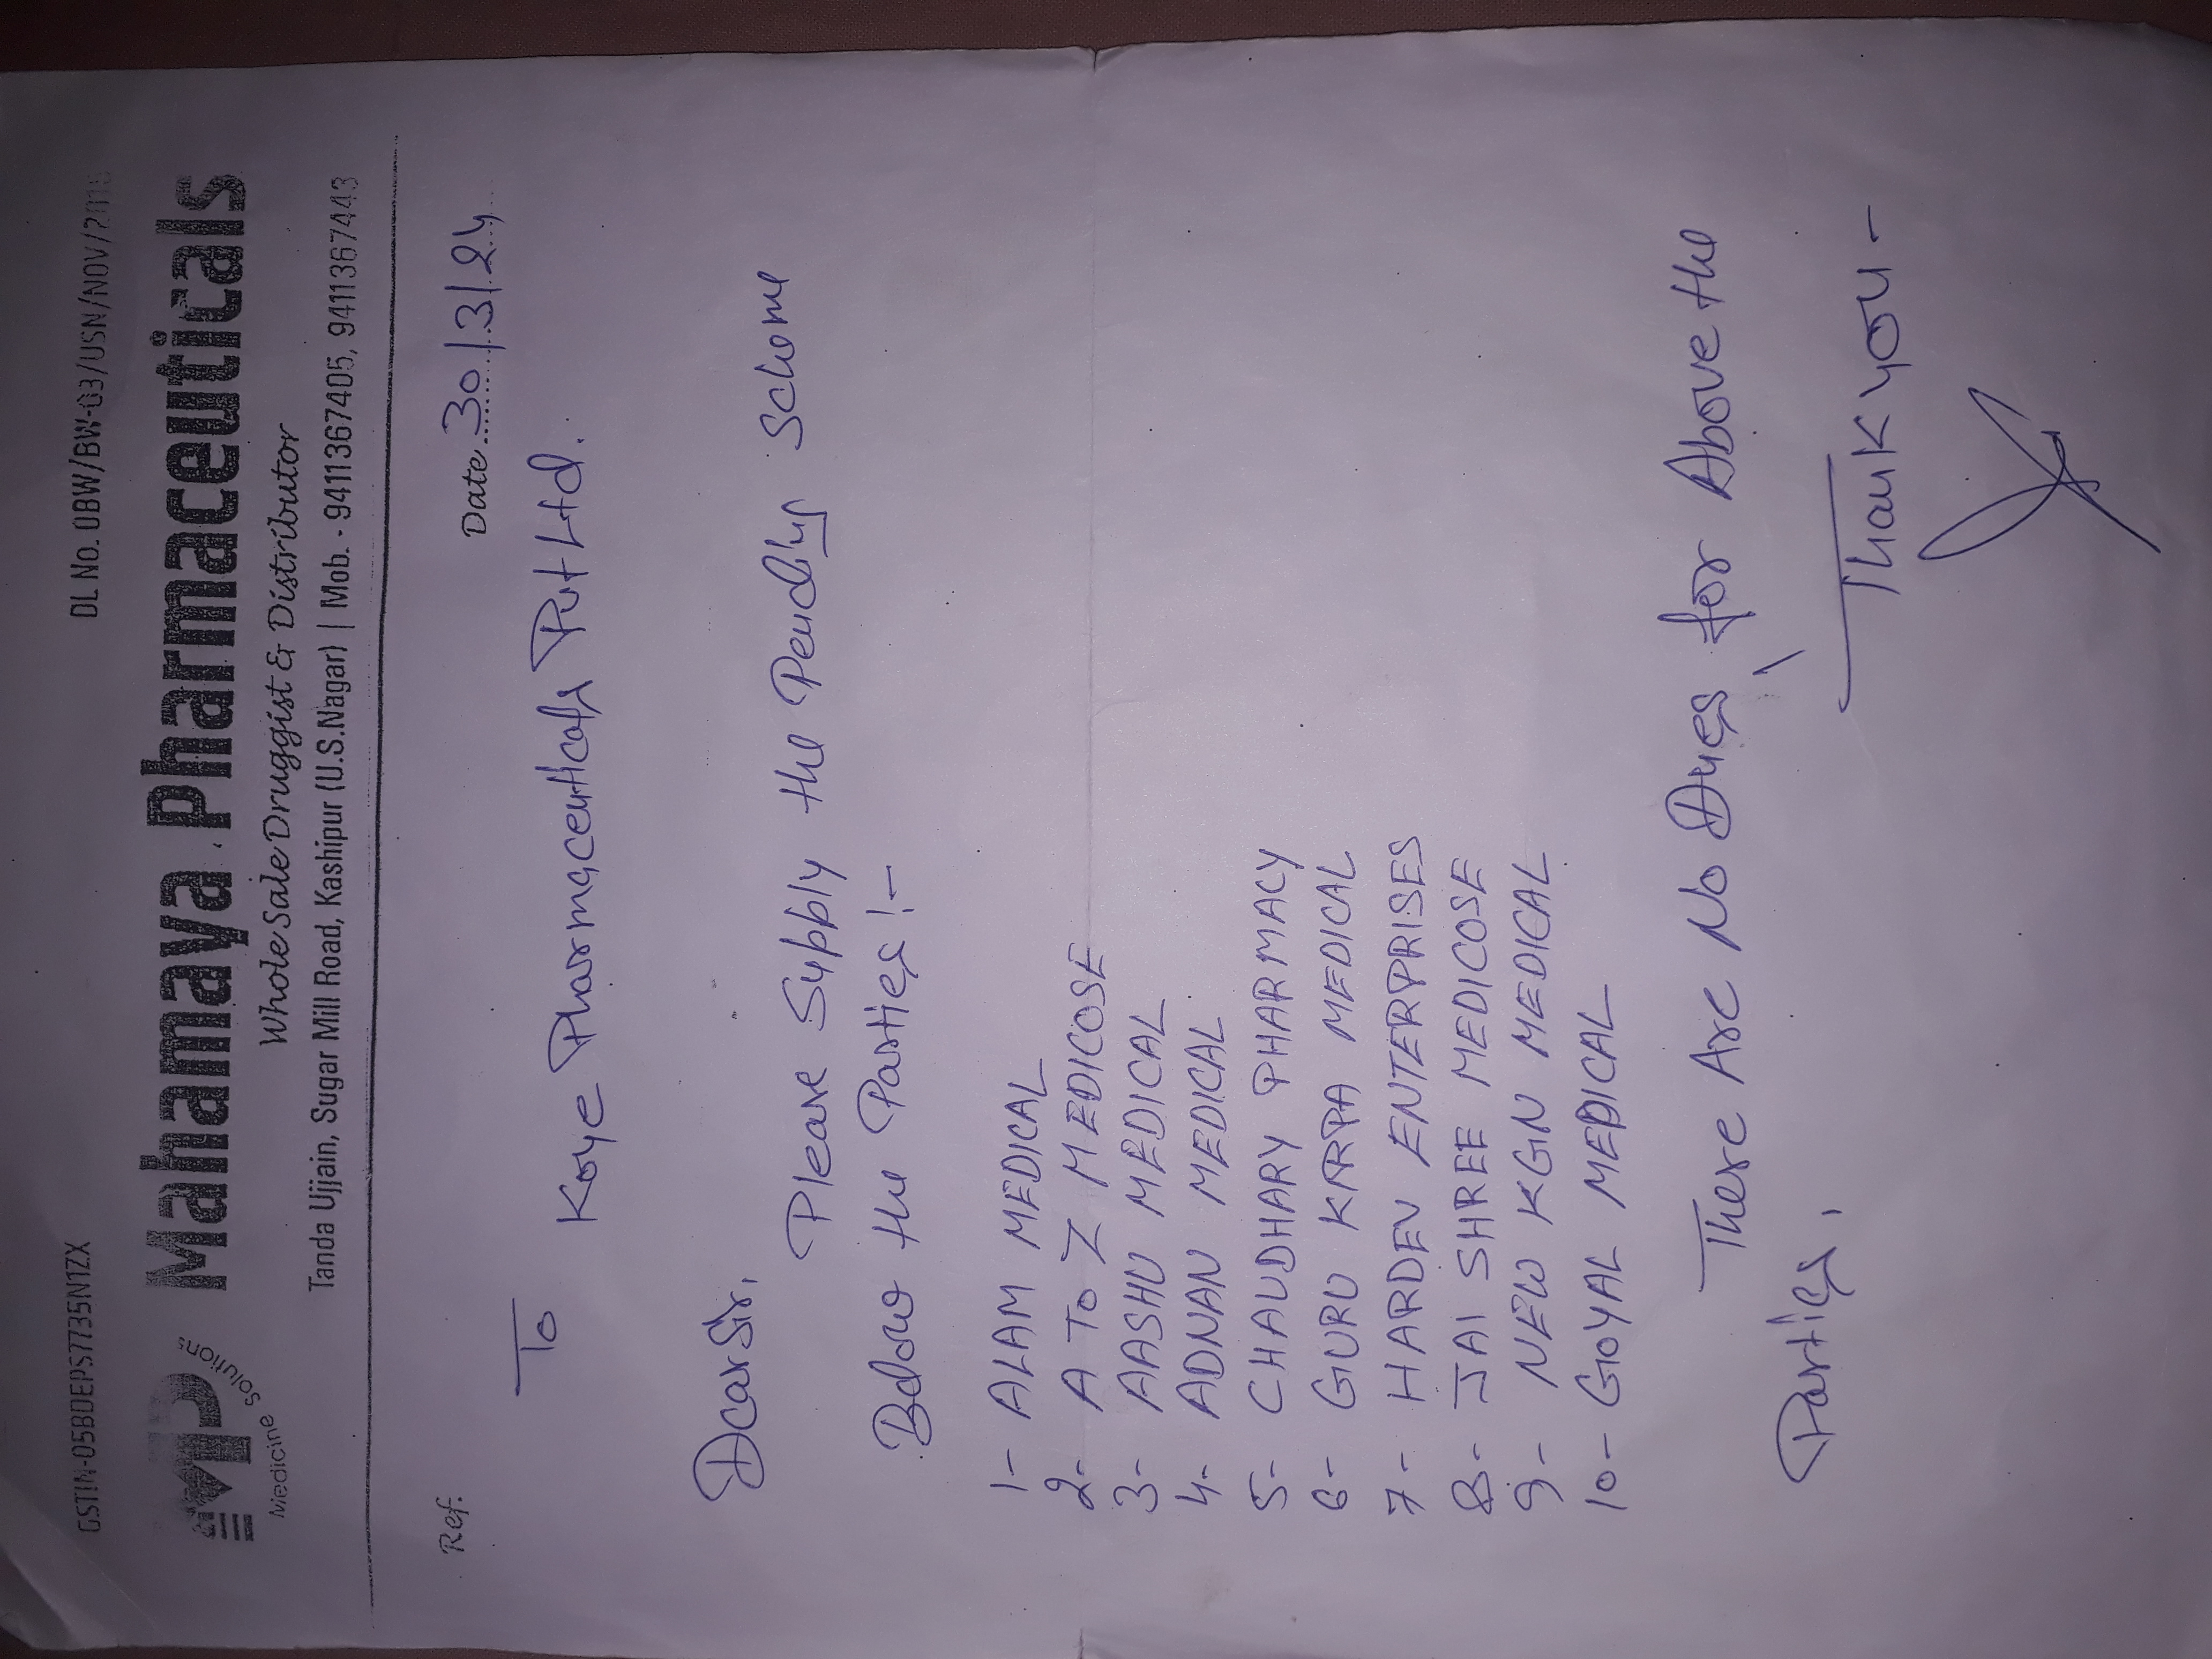 GSTIN-05BDEPS7735N1ZX DL No. OBW/BW-03/USN/NOV/201
MP Medicine Solutions
Mahamaya Pharmaceuticals
Whole Sale Druggist & Distributor
Tanda Ujjain, Sugar Mill Road, Kashipur (U.S.Nagar) | Mob. - 9411367405, 9411367443
Ref. Date 30/3/24
To
Kaye Pharmaceuticals Pvt Ltd.
Dear Sir,
Please Supply the Pending Scheme
Below the Parties :-
1- ALAM MEDICAL
2- A To Z MEDICOSE
3- AASHU MEDICAL
4- ADNAN MEDICAL
5- CHAUDHARY PHARMACY
6- GURU KRPA MEDICAL
7- HARDEV ENTERPRISES
8- JAI SHREE MEDICOSE
9- NEW KGN MEDICAL
10- GOYAL MEDICAL
There Are No Dues, for Above the
Parties,
Thank you -